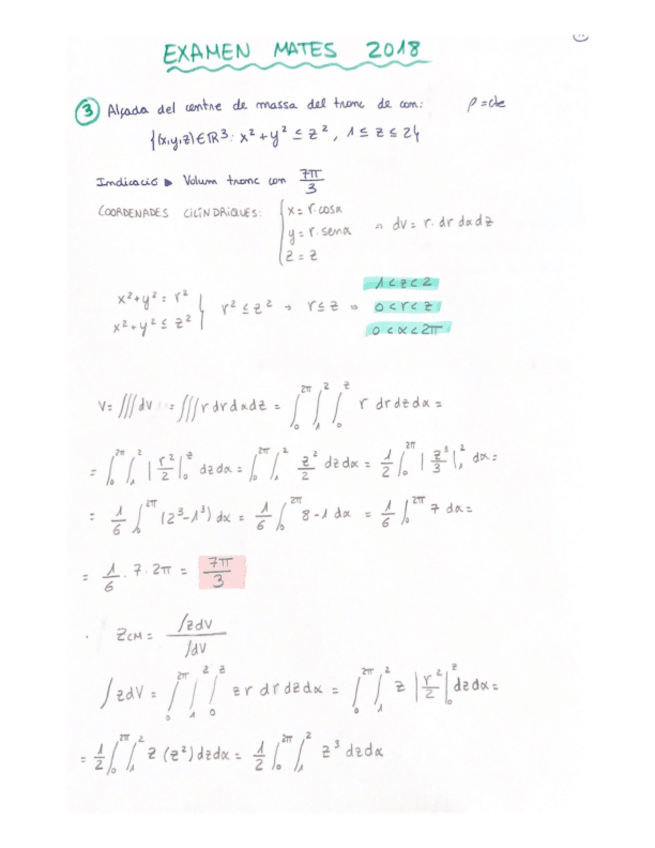 EXAMEN MATES 2018
③ Alçada del centre de massa del tronc de con: ρ = cte
{(x,y,z) ∈ ℝ³: x² + y² ≤ z², 1 ≤ z ≤ 2}
Indicació ▶ Volum tronc con 7π/3
COORDENADES CILÍNDRIQUES: { x = r·cosα
y = r·senα ⇒ dV = r·dr dα dz
z = z
1 < z < 2
x² + y² = r²
x² + y² ≤ z² } r² ≤ z² → r ≤ z ⇒ 0 < r < z
0 < α < 2π
V = ∭ dV = ∭ r dr dα dz = ∫₀^2π ∫₁^2 ∫₀^z r dr dz dα =
= ∫₀^2π ∫₁^2 |r²/2|₀^z dz dα = ∫₀^2π ∫₁^2 z²/2 dz dα = 1/2 ∫₀^2π |z³/3|₁^2 dα =
= 1/6 ∫₀^2π (2³ - 1³) dα = 1/6 ∫₀^2π 8 - 1 dα = 1/6 ∫₀^2π 7 dα =
= 1/6 · 7 · 2π = 7π/3
· z_CM = ∫zdV / ∫dV
∫ z dV = ∫₀^2π ∫₁^2 ∫₀^z z r dr dz dα = ∫₀^2π ∫₁^2 z |r²/2|₀^z dz dα =
= 1/2 ∫₀^2π ∫₁^2 z (z²) dz dα = 1/2 ∫₀^2π ∫₁^2 z³ dz dα